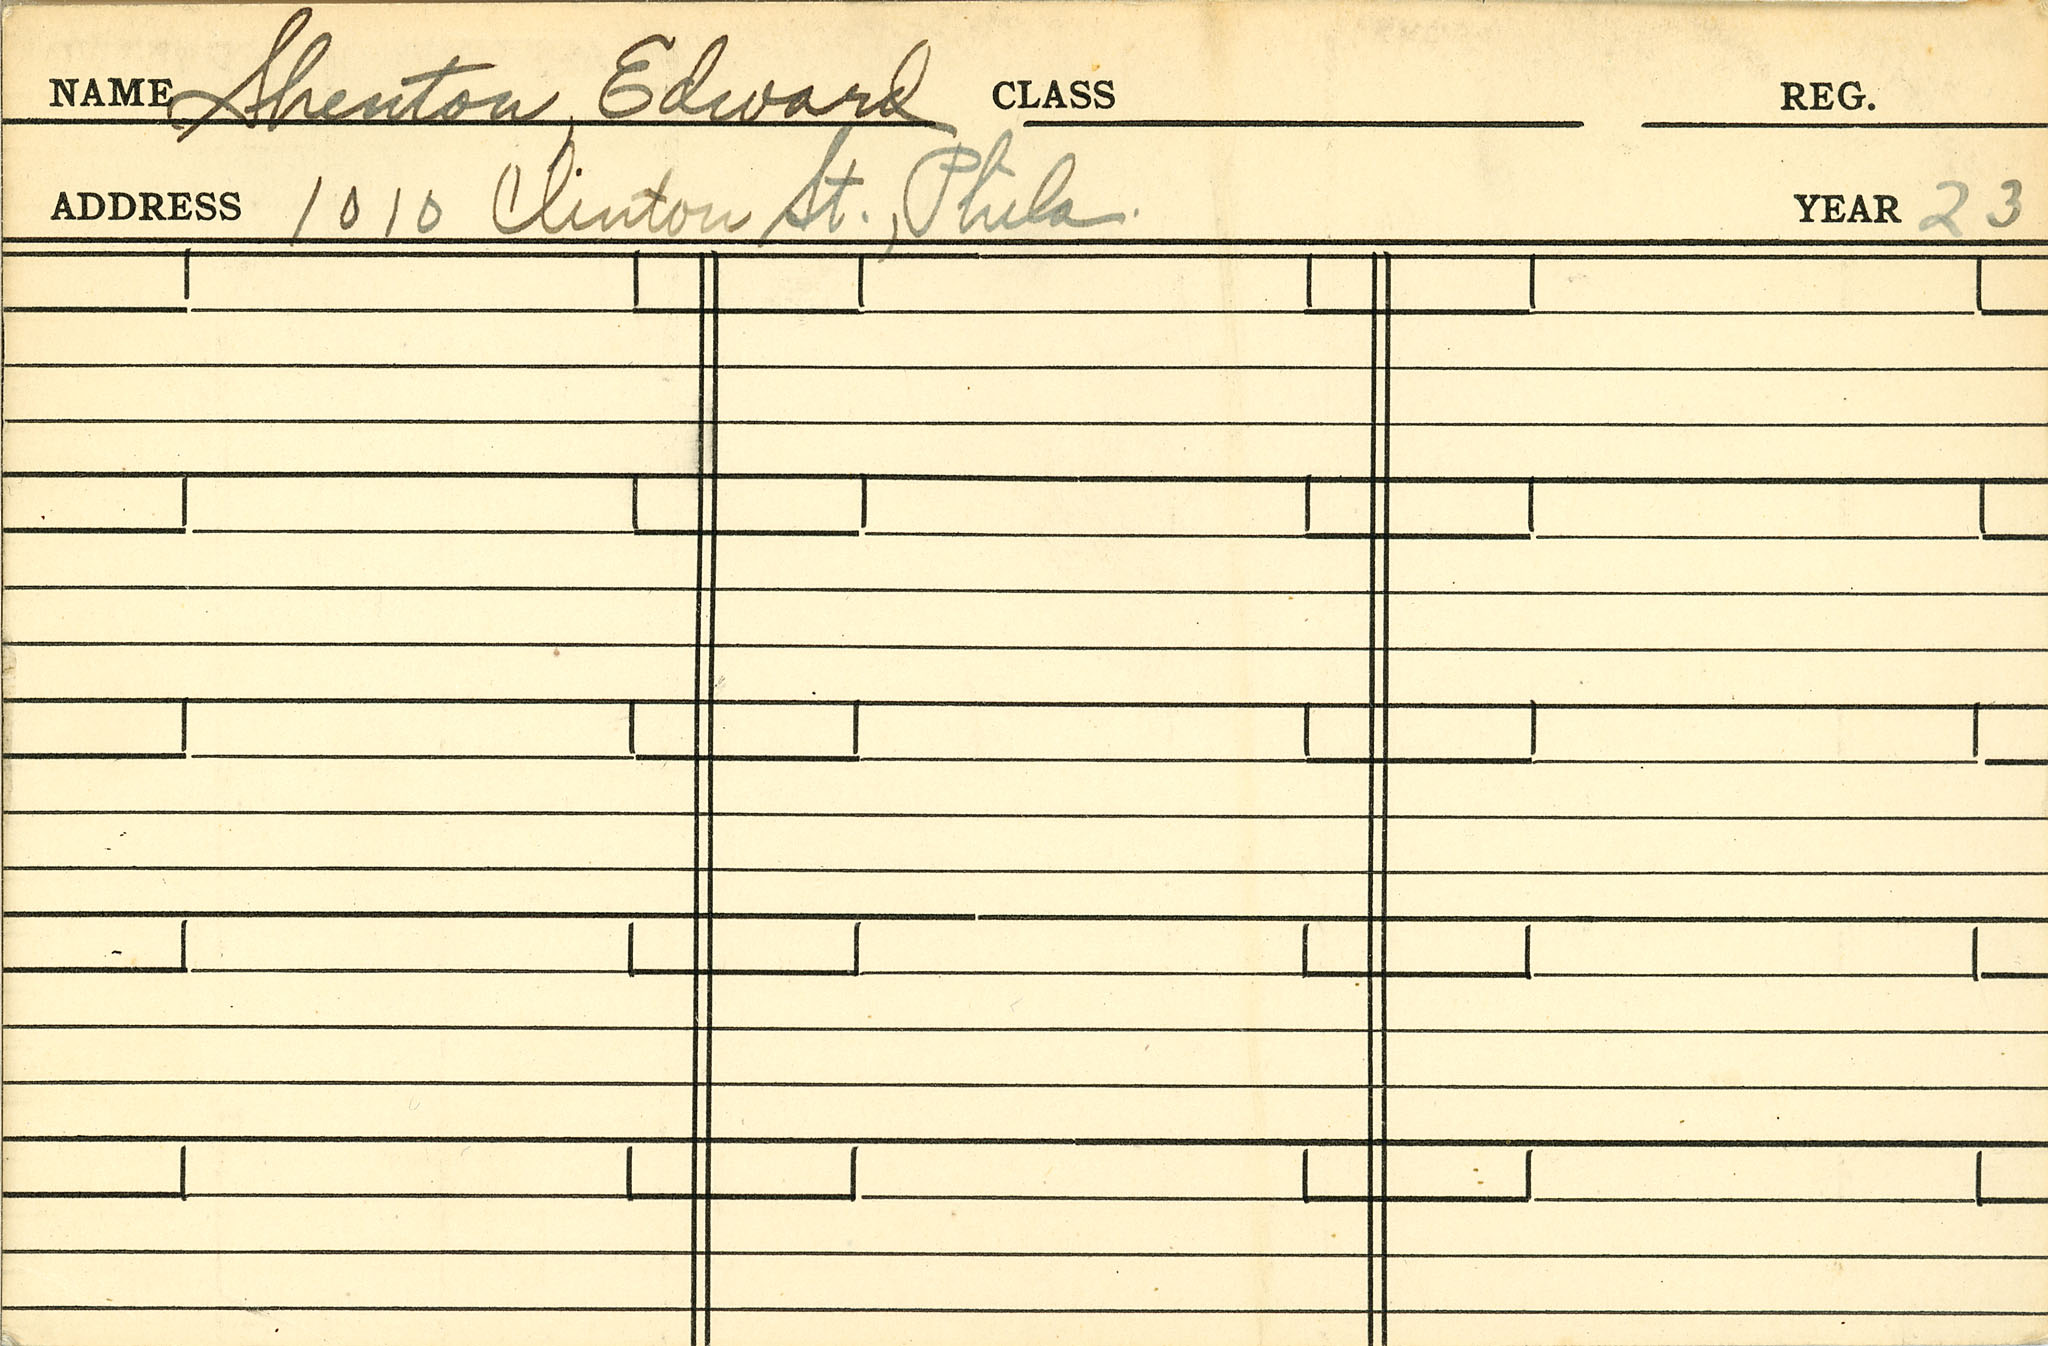 NAME Shenton, Edward CLASS REG.
ADDRESS 1010 Clinton St., Phila. YEAR 23